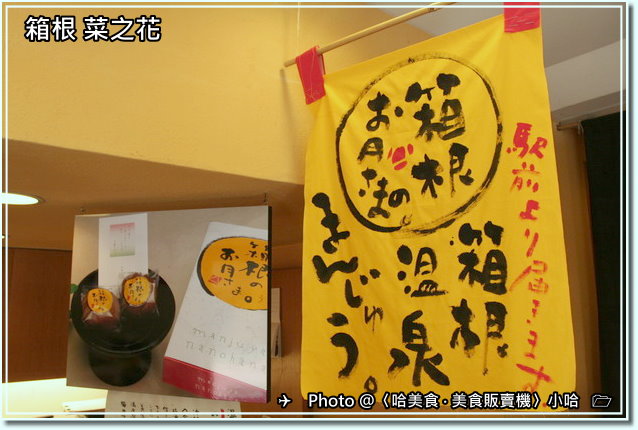 箱根 菜之花
箱根
お月さまの
駅前より届きます。
箱根
温泉
まんじゅう。
箱根の
お月さま。
manju
nanohana
Photo @〈哈美食·美食販賣機〉小哈